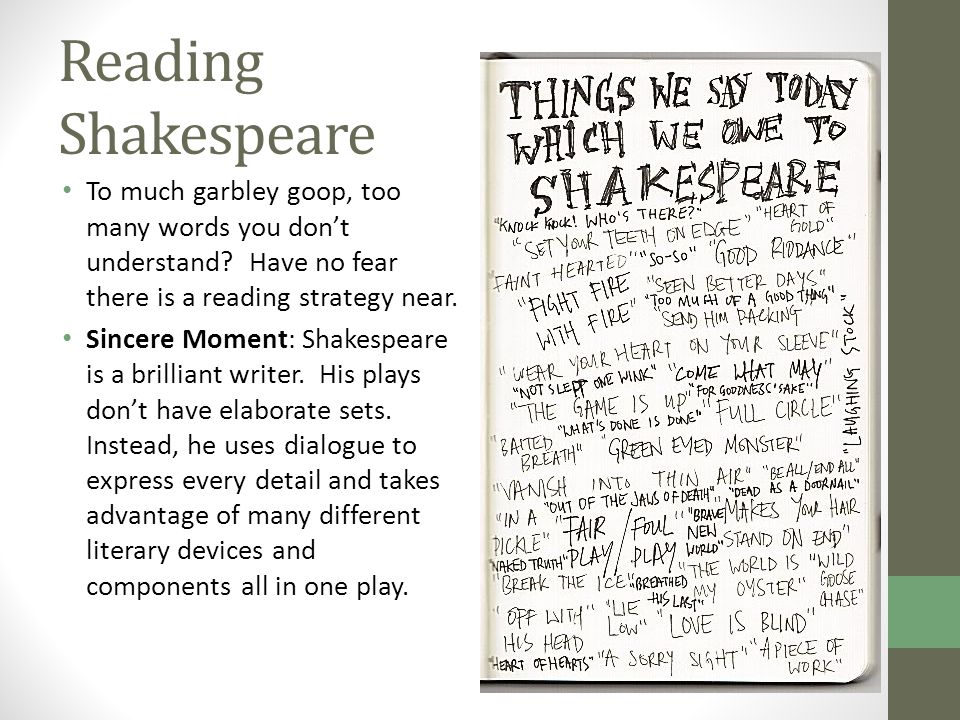 Reading
Shakespeare
• To much garbley goop, too
many words you don't
understand?  Have no fear
there is a reading strategy near.
• Sincere Moment: Shakespeare
is a brilliant writer.  His plays
don't have elaborate sets.
Instead, he uses dialogue to
express every detail and takes
advantage of many different
literary devices and
components all in one play.
THINGS WE SAY TODAY
WHICH WE OWE TO
SHAKESPEARE
"KNOCK KNOCK! WHO'S THERE?" "HEART OF
GOLD"
"SET YOUR TEETH ON EDGE"
FAINT HEARTED" "SO-SO" "GOOD RIDDANCE"
"FIGHT FIRE
WITH FIRE"
"SEEN BETTER DAYS"
"TOO MUCH OF A GOOD THING"
"SEND HIM PACKING
"WEAR YOUR HEART ON YOUR SLEEVE"
"NOT SLEPT ONE WINK" "COME WHAT MAY"
"FOR GOODNESS' SAKE"
"THE GAME IS UP" "FULL CIRCLE"
"LAUGHING STOCK"
"WHAT'S DONE IS DONE"
"BAITED
BREATH"
"GREEN EYED MONSTER"
"VANISH INTO THIN AIR" "BE ALL/END ALL"
"OUT OF THE JAWS OF DEATH" "DEAD AS A DOORNAIL"
"IN A
PICKLE"
"FAIR
PLAY/
FOUL
PLAY
"BRAVE
NEW
WORLD"
MAKES YOUR HAIR
STAND ON END"
"NAKED TRUTH"
"BREAK THE ICE" "BREATHED
HIS LAST"
"THE WORLD IS
MY OYSTER"
"WILD
GOOSE
CHASE"
"OFF WITH
HIS HEAD
"LIE
LOW"
"LOVE IS BLIND"
"HEART OF HEARTS" "A SORRY SIGHT" "A PIECE OF
WORK"